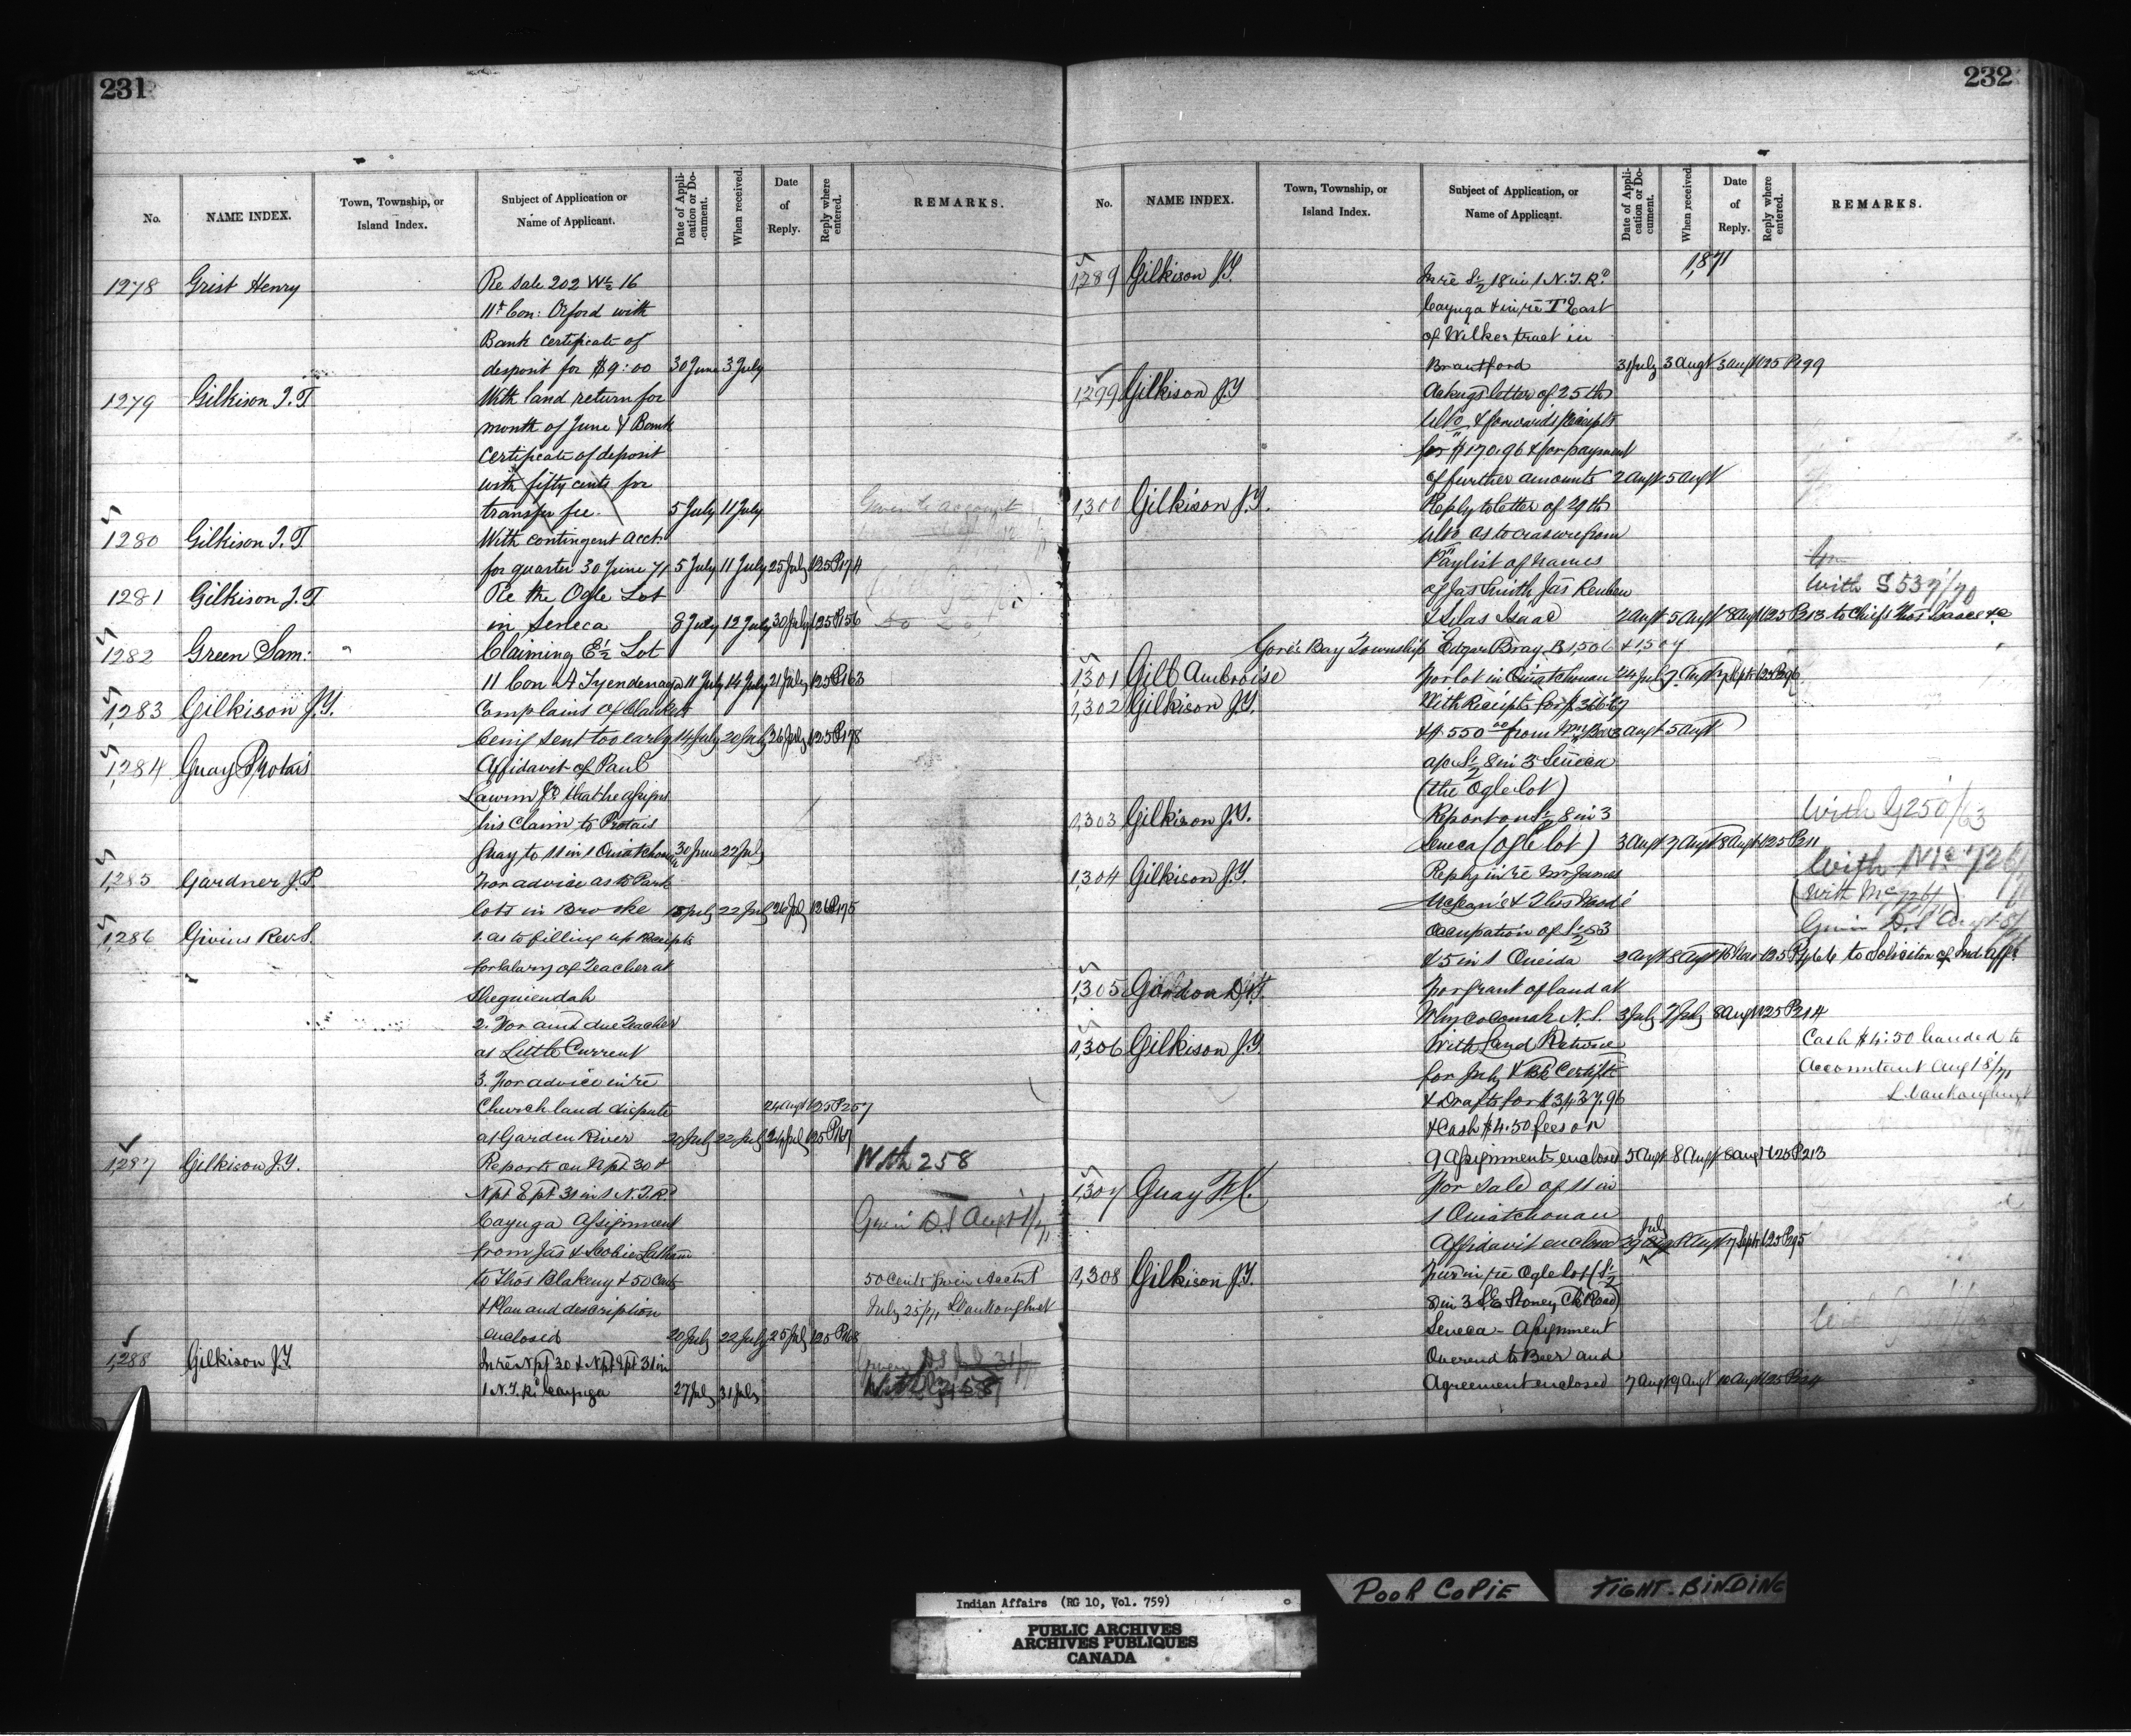 231
No.
NAME INDEX.
Town, Township, or Island Index.
Subject of Application or Name of Applicant.
Date of Appli-cation or Do-cument.
When received.
Date of Reply.
Reply where entered.
REMARKS.
1278 Grist Henry Re Sale 202 W½ 16
11th Con: Orford with
Bank Certificate of
deposit for $9:00 30 June 3 July
1279 Gilkison J.T With land return for
month of June & Bank
Certificate of deposit
with fifty cents for
transfer fee. 5 July 11 July
1280 Gilkison J.T With contingent acct
for quarter 30 June 71 5 July 11 July 25 July 125 P174
1281 Gilkison J.T Re the Ogle Lot
in Seneca 8 July 12 July 30 July 125 P156
1282 Green Sam: Claiming E½ Lot
11 Con A Tyendenaga 11 July 14 July 21 July 125 P163
1283 Gilkison J.T. Complains of blankets
being sent too early 14 July 20 July 26 July 125 P178
1284 Guay Protais Affidavit of Paul
that he assigns
his Claim to Protais
Guay to 11 in 1 Ouiatchouan 30 June 22 July
1,285 Gardner J.P. For advice as to Park
lots in Brooke 18 July 22 July 26 July 126 P175
1,286 Givins Rev. S. 1. as to filling up Receipts
for Salary of Teacher at
Sheguiendah
2. For amt due Teacher
at Little Current
3. For advice in re
Church land dispute 24 Augt 125 P257
at Garden River 20 July 22 July 24 July 125 P167
1,287 Gilkison J.T. Reports on N pt 30 & With 258
N pt E pt 31 in 1 N.T.R.
Cayuga Assignment Given D.S Augt 1/71
from Jas & Latham
to Thos Blakeny & 50 Cents 50 Cents given Acctnt
& Plan and description July 25/71 LVankoughnet
enclosed 20 July 22 July 25 July 125 P168
1,288 Gilkison J.T. In re N pt 30 & N pt E pt 31 in
1 N.T.R. Cayuga 27 July 31 July With 258
232
No.
NAME INDEX.
Town, Township, or Island Index.
Subject of Application, or Name of Applicant.
Date of Appli-cation or Do-cument.
When received
Date of Reply.
Reply where entered.
REMARKS.
1,871
1,289 Gilkison J.T. In re S½ 18 in 1 N.T.R.
Cayuga & in re T East
of Wilkes tract in
Brantford 31 July 3 Augt 3 Augt 125 P199
1,299 Gilkison J.T Ackngs letter of 25th
Ulto & forwards Receipts
for $170.96 & for payment
of further amounts 2 Augt 5 Augt
1,300 Gilkison J.T. Reply to letter of 29th
Ulto as to erasure from
Paylist of names
of Jas Smith Jas Reuben With S 537/70
& Silas Isaac 2 Augt 5 Augt 8 Augt 125 P213 to Chiefs Thos Isaac &c
Gore's Bay Township Edgar Bray B 1,506 & 1,507
1301 Gill Ambroise For lot in Ouiatchouan 24 July 7 Augt 7 Sept 125 P296
1,302 Gilkison J.T. With Receipts for $366.67
& $550.00 from Mr Beer 3 Augt 5 Augt
a/c S½ 8 in 3 Seneca
(the Ogle lot)
1,303 Gilkison J.T. Report on S½ 8 in 3 With G250/63
Seneca (Ogle lot) 3 Augt 7 Augt 8 Augt 125 P211
1,304 Gilkison J.T. Reply in re Mr James
McLean's & Thos
occupation of S½ 53 Given D.S Augt 8/71
& 5 in 1 Oneida 2 Augt 8 Augt 125 P466 to Solicitor of Ind. Affs
1,305 Gordon D. For grant of land at
Whycocomah N.S. 3 July 7 July 8 Augt 125 P214
1,306 Gilkison J.T. With Land Returns Cash $4:50 handed to
for July & Bk Certifte Accountant Aug 18/71
& Drafts for $3437.96 LVankoughnet
& Cash $4.50 fees on
9 assignments enclosed 5 Augt 8 Augt 8 Augt 125 P213
1,307 Guay For sale of 11 in
1 Ouiatchouan
July
Affidavit enclosed 29 8 Augt 7 Sept 125 P295
1,308 Gilkison J.T. Further in re Ogle lot (S½
8 in 3 S.E Stoney Ck Road)
Seneca - Assignment
Overend to Beer and
Agreement enclosed 7 Augt 9 Augt 10 Augt 125
POOR COPIE
TIGHT-BINDING
Indian Affairs (RG 10, Vol. 759)
PUBLIC ARCHIVES
ARCHIVES PUBLIQUES
CANADA